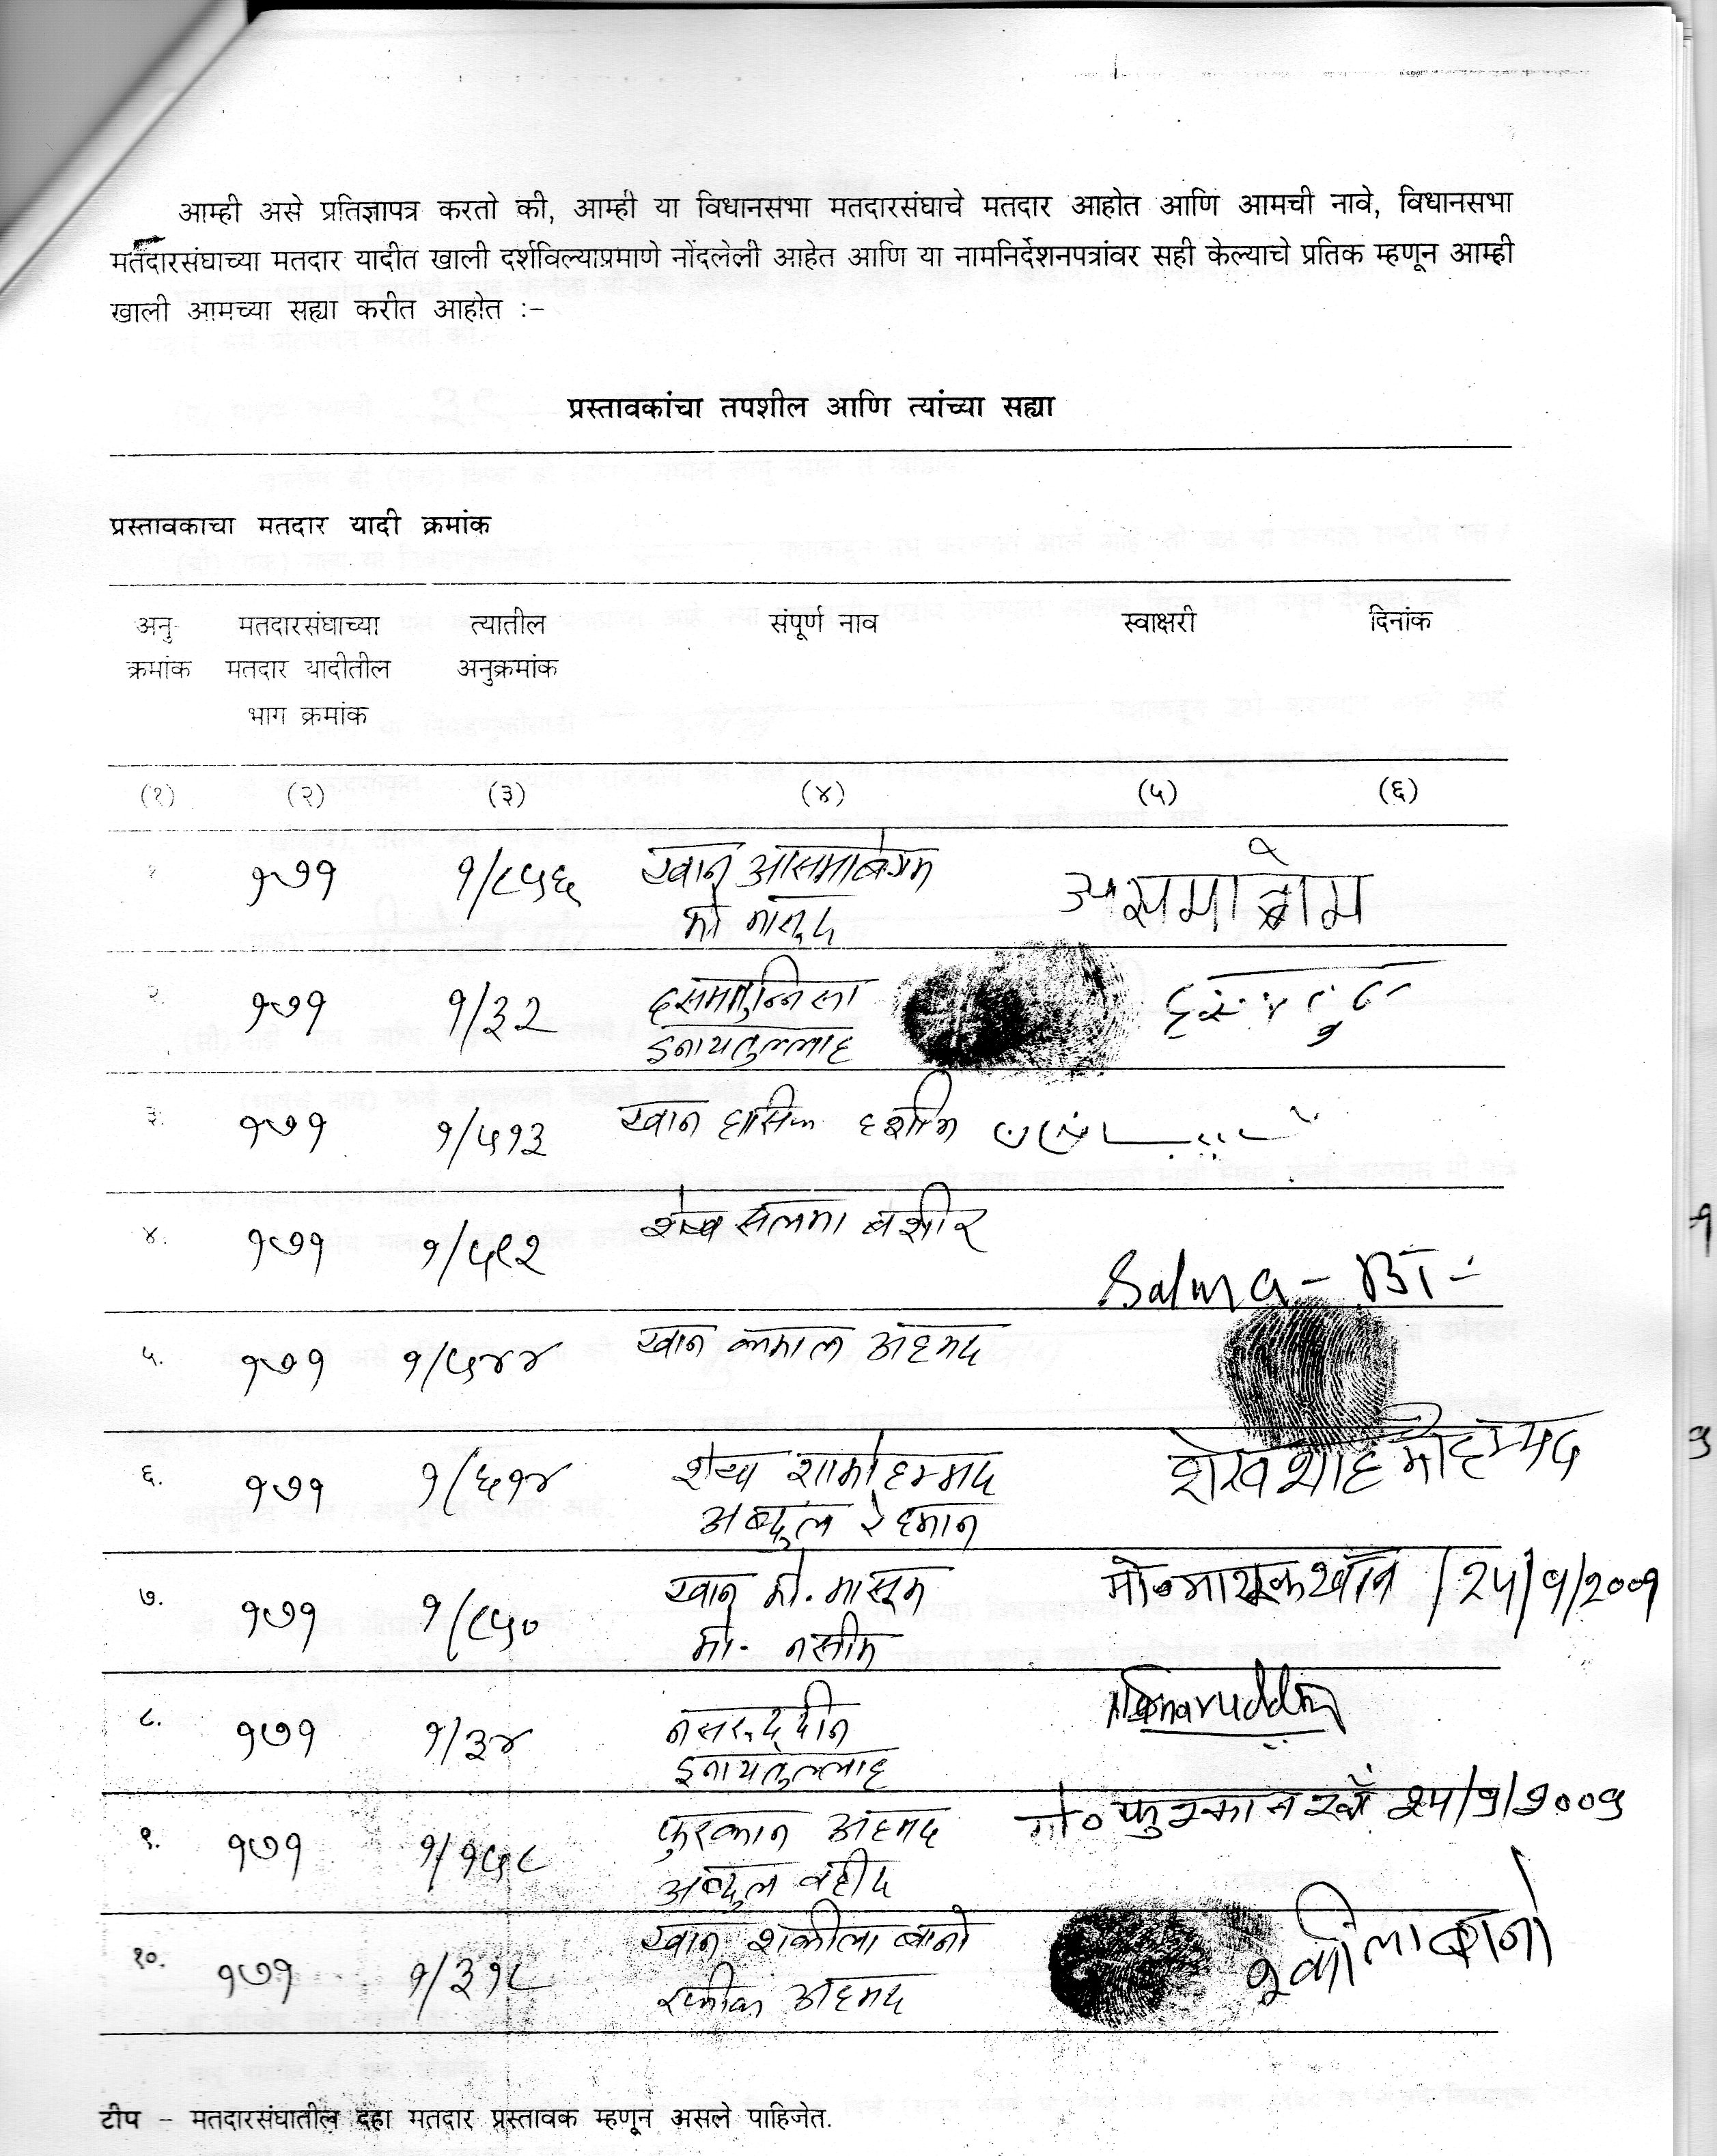 आम्ही असे प्रतिज्ञापत्र करतो की, आम्ही या विधानसभा मतदारसंघाचे मतदार आहोत आणि आमची नावे, विधानसभा
मतदारसंघाच्या मतदार यादीत खाली दर्शविल्याप्रमाणे नोंदलेली आहेत आणि या नामनिर्देशनपत्रांवर सही केल्याचे प्रतिक म्हणून आम्ही
खाली आमच्या सह्या करीत आहोत :-
प्रस्तावकांचा तपशील आणि त्यांच्या सह्या
प्रस्तावकाचा मतदार यादी क्रमांक
अनु मतदारसंघाच्या त्यातील संपूर्ण नाव स्वाक्षरी दिनांक
क्रमांक मतदार यादीतील अनुक्रमांक
भाग क्रमांक
(१) (२) (३) (४) (५) (६)
१ १७१ १/८५६ खान आसमाबेगम
मो मासूद
२. १७१ १/३२
इनायतुल्लाह
३. १७१ १/५१३ खान हासिम हशीम
४. १७१ १/५९२ शेख सलमा बशीर
Salma - BI -
५. १७१ १/५४४ खान कमाल अहमद
६. १७१ १/६१४ शेख शामोहम्मद शेख शाह मोहम्मद
अब्दुल रेहमान
७. १७१ १/८५० खान मो. मासूम / २५/९/२००९
मो. नसीम
८. १७१ १/३४ नसरुद्दीन
इनायतुल्लाह
९. १७१ १/१५८ फुरकान अहमद मो० फुरकान खाँ २५/९/२००९
अब्दुल वहीद
१०. १७१ १/३१८ खान शकीला बानो शकीला बानो
रफीक अहमद
टीप - मतदारसंघातील दहा मतदार प्रस्तावक म्हणून असले पाहिजेत.